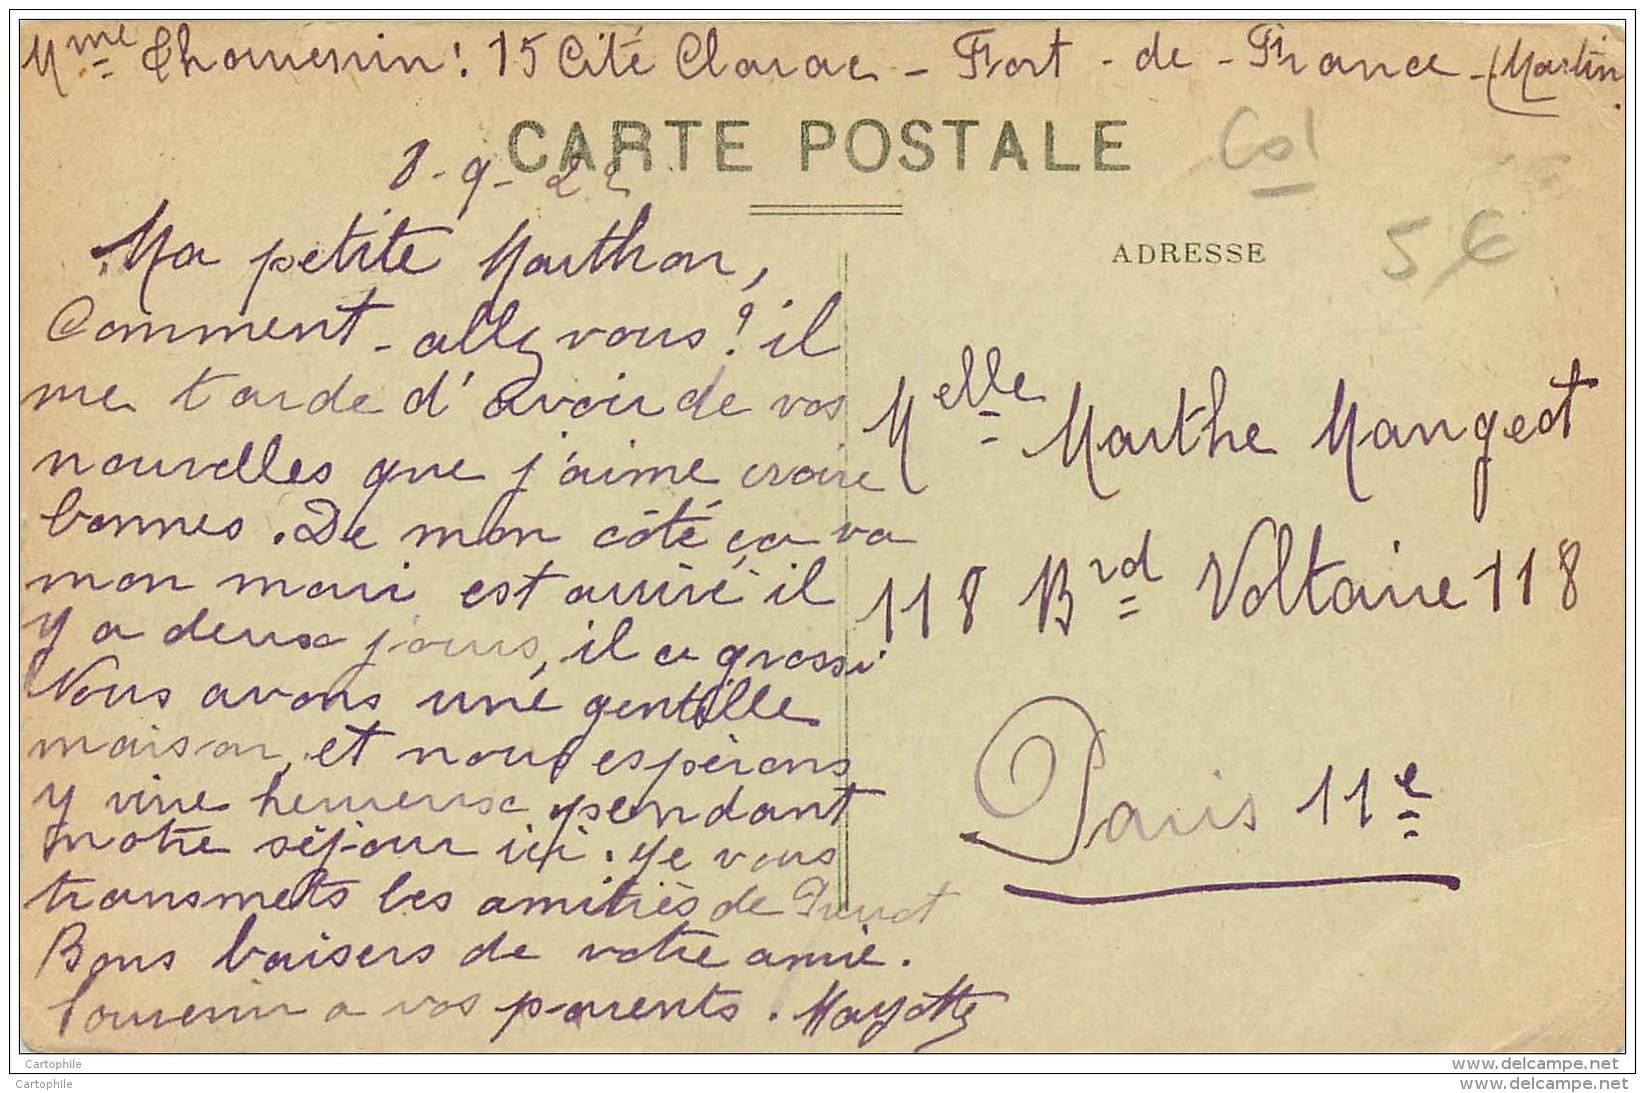 Mme Thouvenin : 15 Cité Clarac - Fort - de - France - (Martin.
CARTE POSTALE
Col
8-9-22
ADRESSE
5 €
Ma petite Marthon,
Comment - allez vous ? il
me tarde d'avoir de vos
nouvelles que j'aime croire
bonnes. De mon côté ça va
mon mari est arrivé il
y a deux jours, il a grossi
Nous avons une gentille
maison, et nous espérons
y vivre heureux pendant
notre séjour ici. Je vous
transmets les amitiés de
Bons baisers de votre amie.
Souvenir a vos parents. Mayotte
Melle Marthe Mangeot
118 Brd Voltaire 118
Paris 11e
Cartophile
www.delcampe.net
Cartophile
www.delcampe.net